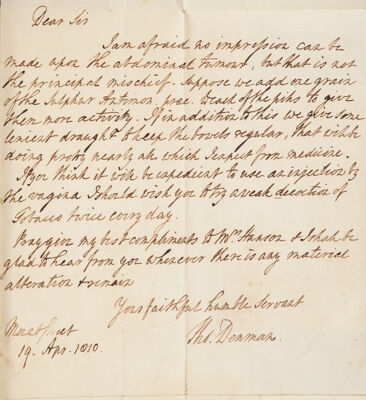 Dear Sir
I am afraid no impression can be
made upon the abdominal tumour, but that is not
the principal mischief. Suppose we add one grain
of the Sulphur Antimon. prec. to each of the pills to give
them more activity. If in addition to this we give some
lenient draughts to keep the bowels regular, that will be
doing pretty nearly all which I expect from medicine.
If you think it will be expedient to use an injection by
the vagina I should wish you to try a weak decoction of
Tobacco twice every day.
Pray give my best compliments to Mrs Hanson & I shall be
glad to hear from you whenever there is any material
alteration & remain
Your faithful humble Servant
Tho. Denman.
Mount Street
19. Apr. 1810.